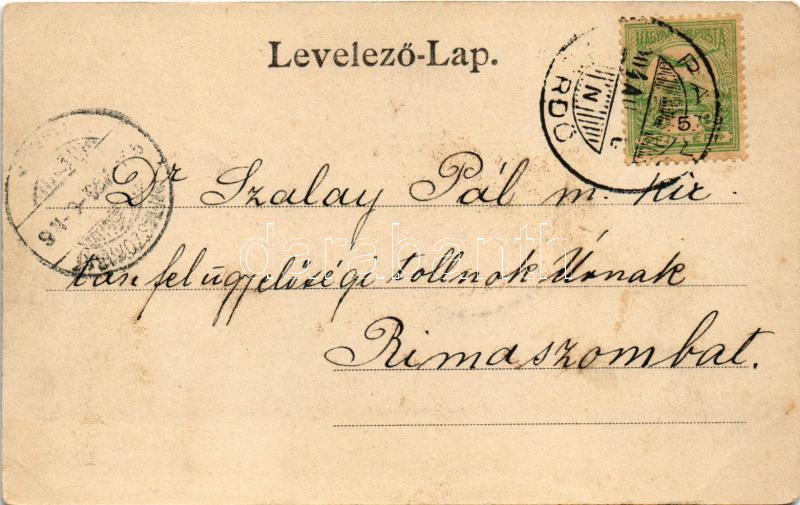 Levelező-Lap.
MAGYAR KIR. POSTA
5
RDŐ
Dr Szalay Pál m. kir.
tanfelügyelőségi tollnok Úrnak
Rimaszombat.
darabanth